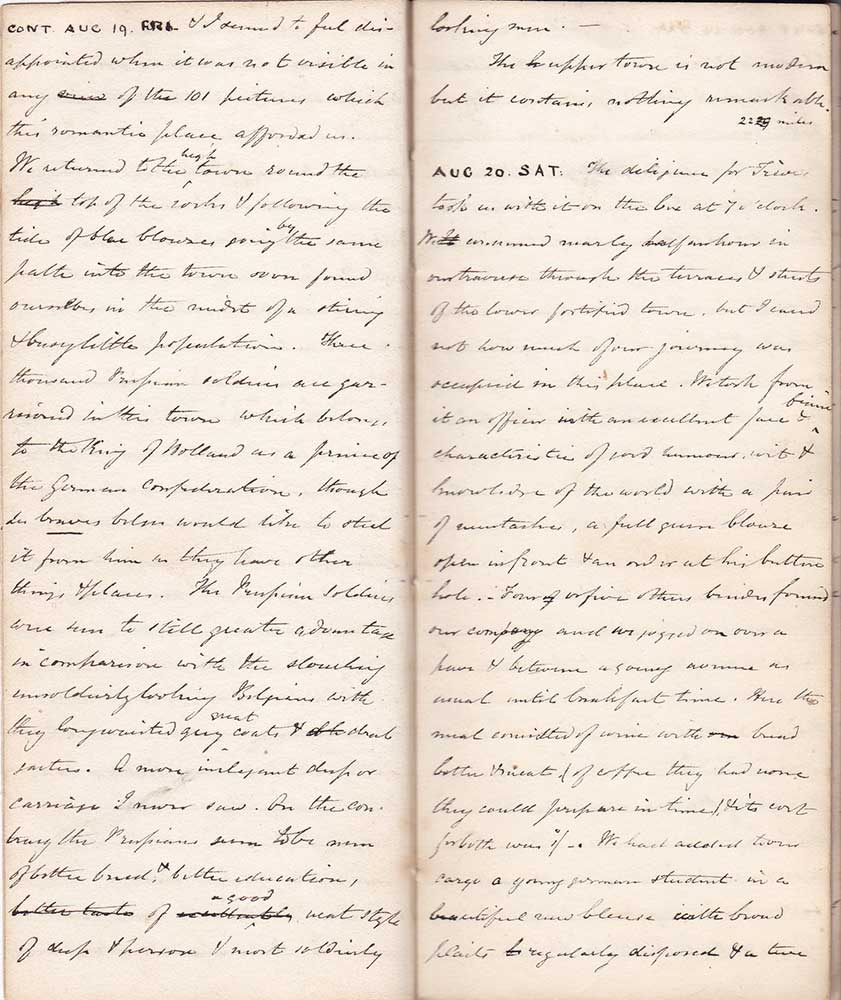 CONT. AUG 19. FRI. & I seemed to feel dis-
appointed when it was not visible in
any view of the 101 pictures which
this romantic place afforded us.
We returned to the high town round the
high top of the rocks & following the
tide of blue blouzes going by the same
path into the town soon found
ourselves in the midst of a stirring
& busy little population. Three
thousand Prussian soldiers are gar-
risoned in this town which belongs
to the King of Holland as a prince of
the German Confederation, though
les braves belges would like to steal
it from him as they have other
things & places. The Prussian soldiers
were seen to still greater advantage
in comparison with the slouching
unsoldierly looking Belgians with
they long waisted grey great coats & drab
gaiters. A more inelegant dress or
carriage I never saw. On the con-
trary the Prussians seem to be men
of better breed, & better education,
better taste of a good neat style
of dress & person & most soldierly
looking men. —
The upper town is not modern
but it contains nothing remarkable.
22 miles
AUG 20. SAT. The diligence for Treves
took us with it on the box at 7 o'clock.
We consumed nearly half an hour in
our traverse through the terraces & streets
of the lower fortified town, but I cared
not how much of our journey was
occupied in this place. We took from
it an officer with an excellent face &
characteristic of good humour, wit &
knowledge of the world with a pair
of mustaches, a full green blouze
open in front & an order at his button
hole. - Four or five others besides formed
our company and we jogged on over a
pavé & between a young avenue as
usual until breakfast time. Here the
meal consisted of wine with bread
butter & meat, (of coffee they had none
they could prepare in time), & its cost
for both was 2/-. We had added to our
cargo a young german student in a
beautiful new blouse with broad
plaits regularly disposed & a two